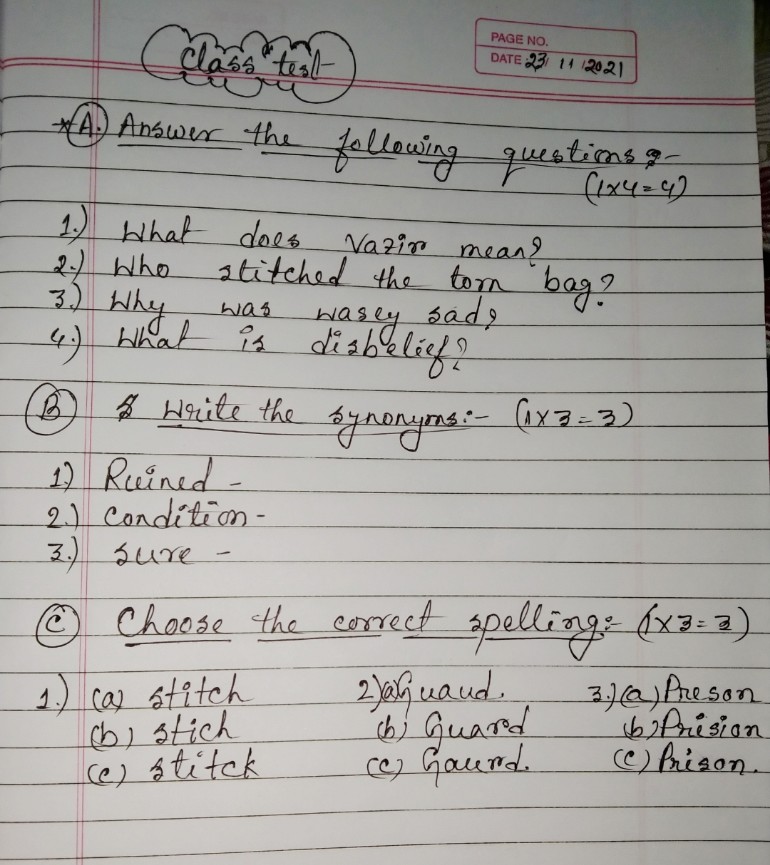 Class test
PAGE NO.
DATE 23/ 11 /2021
*(A.) Answer the following questions :-
(1x4=4)
1.) What does Vazir mean?
2.) Who stitched the torn bag?
3.) Why was wasey sad?
4.) What is disbelief?
(B) Write the synonyms:- (1x3=3)
1.) Ruined -
2.) Condition -
3.) sure -
(C) Choose the correct spelling:- (1x3=3)
1.) (a) stitch 2.)(a)Guaud. 3.)(a) Preson
(b) stich (b) Guard (b) Prision
(c) stitck (c) Gaurd. (c) Prison.